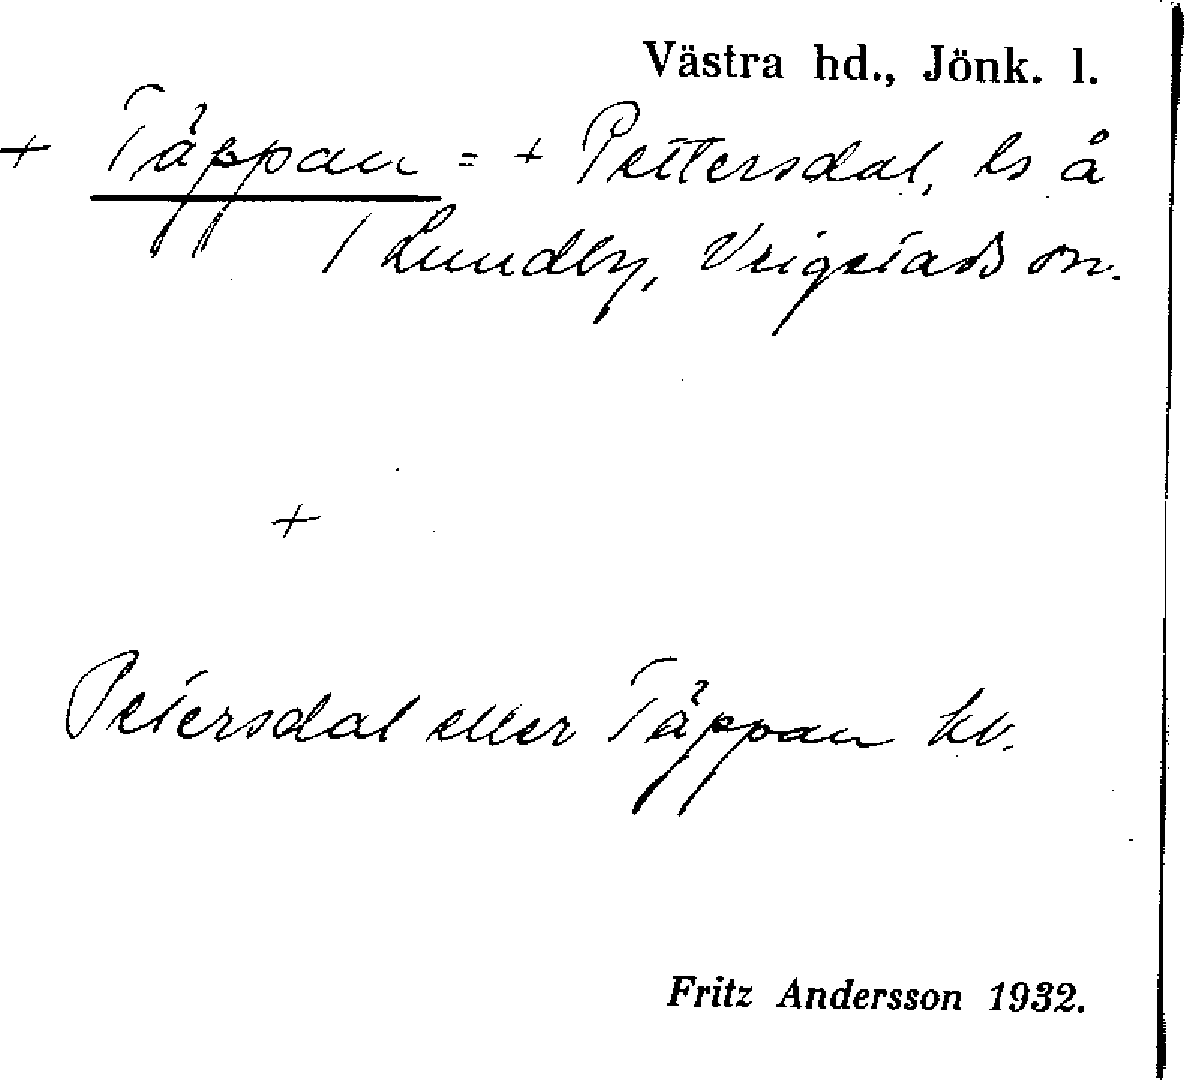 Västra hd., Jönk. l.
+ Täppan = + Pettersdal, ls å
/ Lundby, Vrigstads sn.
+
Petersdal eller Täppan
Fritz Andersson 1932.